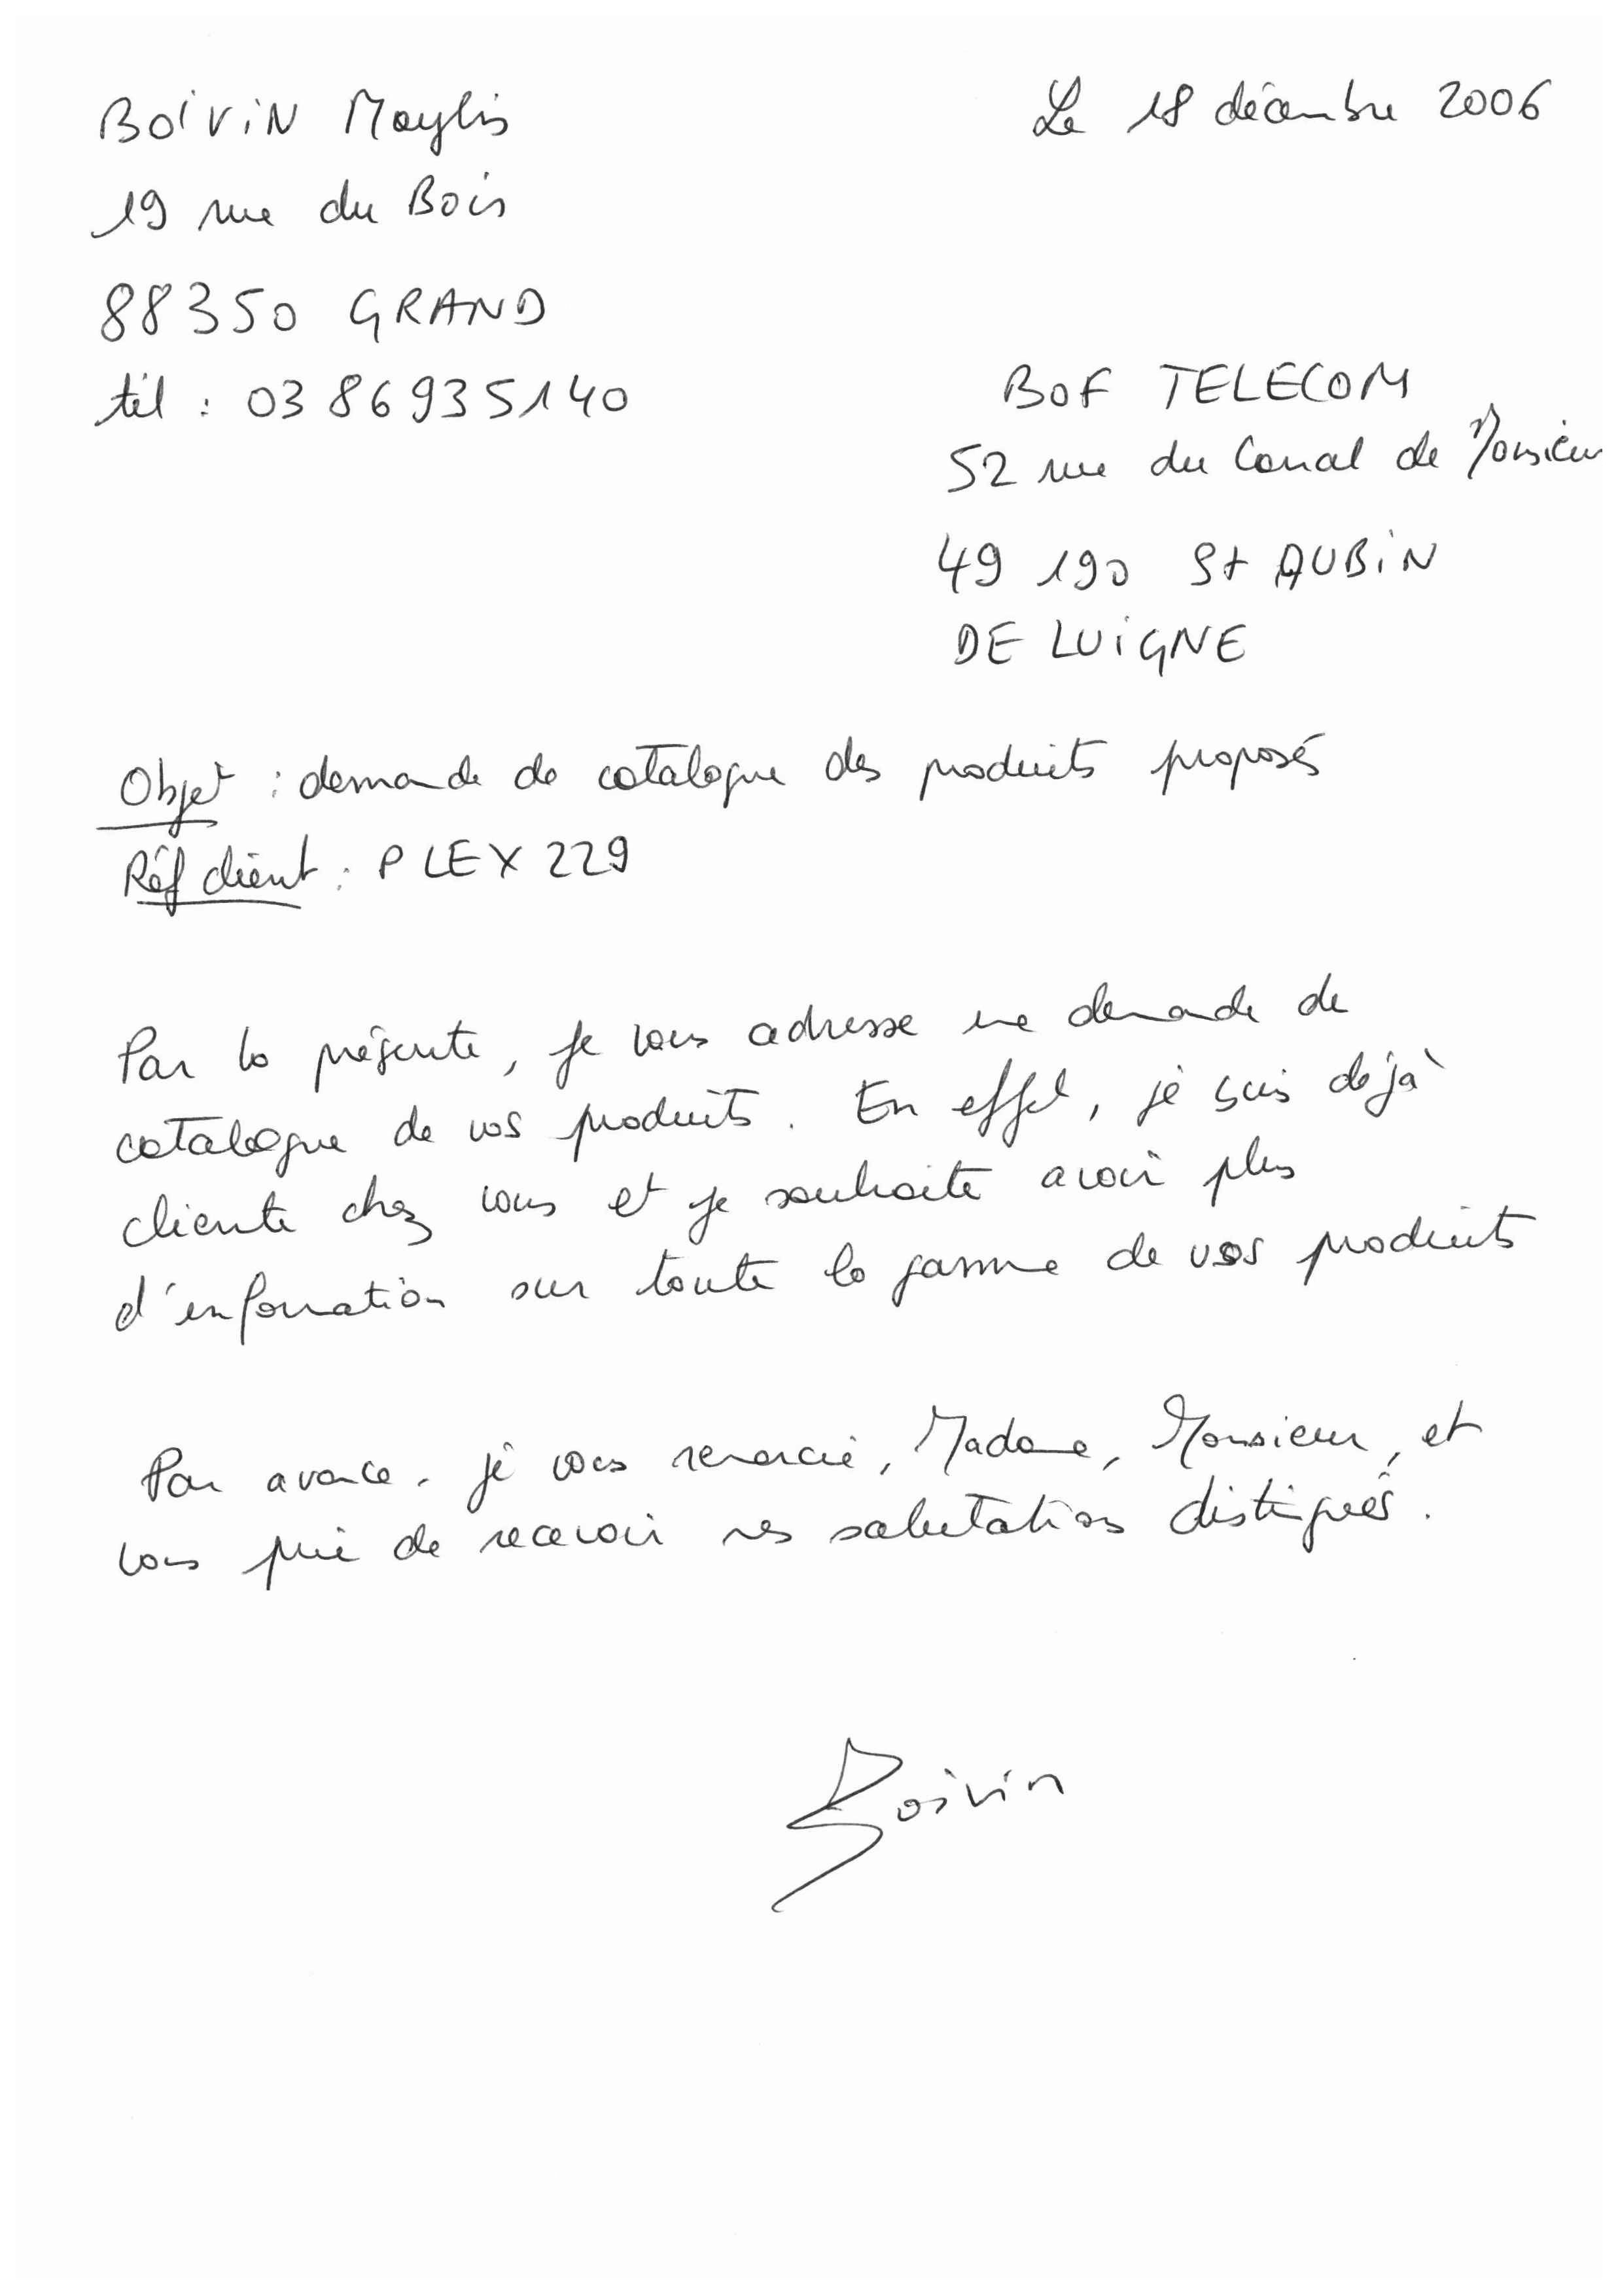 BOIVIN Maylis
Le 18 décembre 2006
19 rue du Bois
88350 GRAND
tél : 03 86 93 51 40
BOF TELECOM
52 rue du Canal de Monsieur
49 190 St AUBIN
DE LUIGNE
Objet : demande de catalogue des produits proposés
Réf client : PLEX 229
Par la présente, je vous adresse une demande de
catalogue de vos produits. En effet, je suis déjà
cliente chez vous et je souhaite avoir plus
d'information sur toute la gamme de vos produits
Par avance, je vous remercie, Madame, Monsieur, et
vous prie de recevoir mes salutations distingués.
Boivin